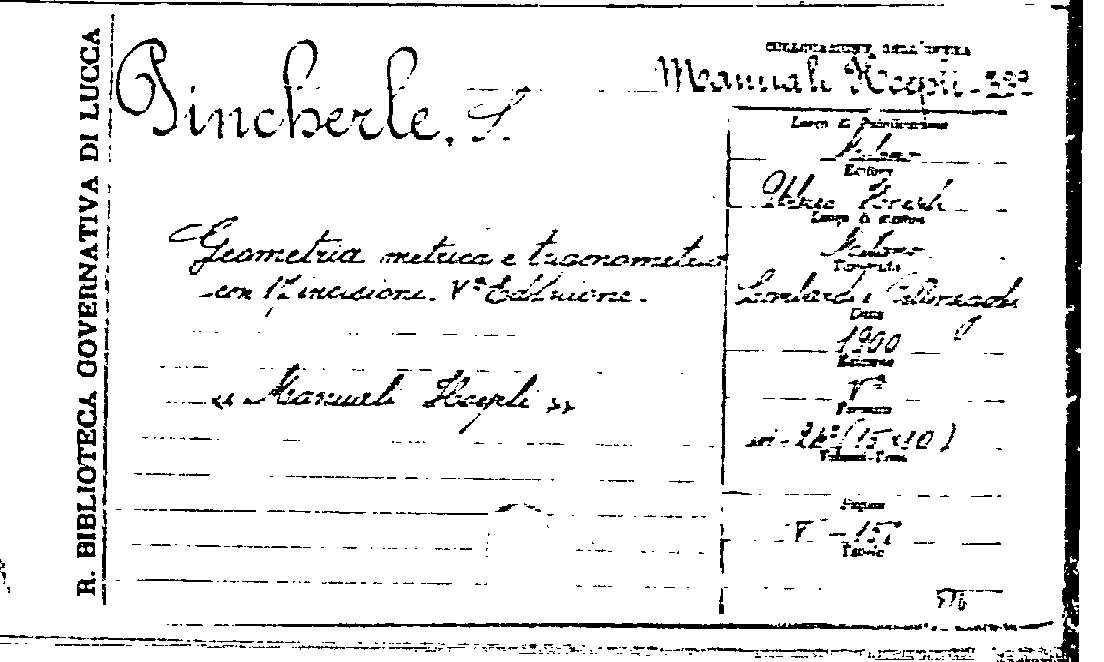 R. BIBLIOTECA GOVERNATIVA DI LUCCA
Pincherle, S.
Geometria metrica e trigonometria
con 17 incisione. Vª Edizione.
« Manuali Hoepli »
COLLOCAZIONE DELL'OPERA
Manuali Hoepli
Luogo di Pubblicazione
Milano
Editore
Ulrico Hoepli
Luogo di stampa
Milano
Tipografia
Lombardi e
Data
1900
Edizione
Vª
Formato
in-24º (15×10)
Pagine
V -
Tavole